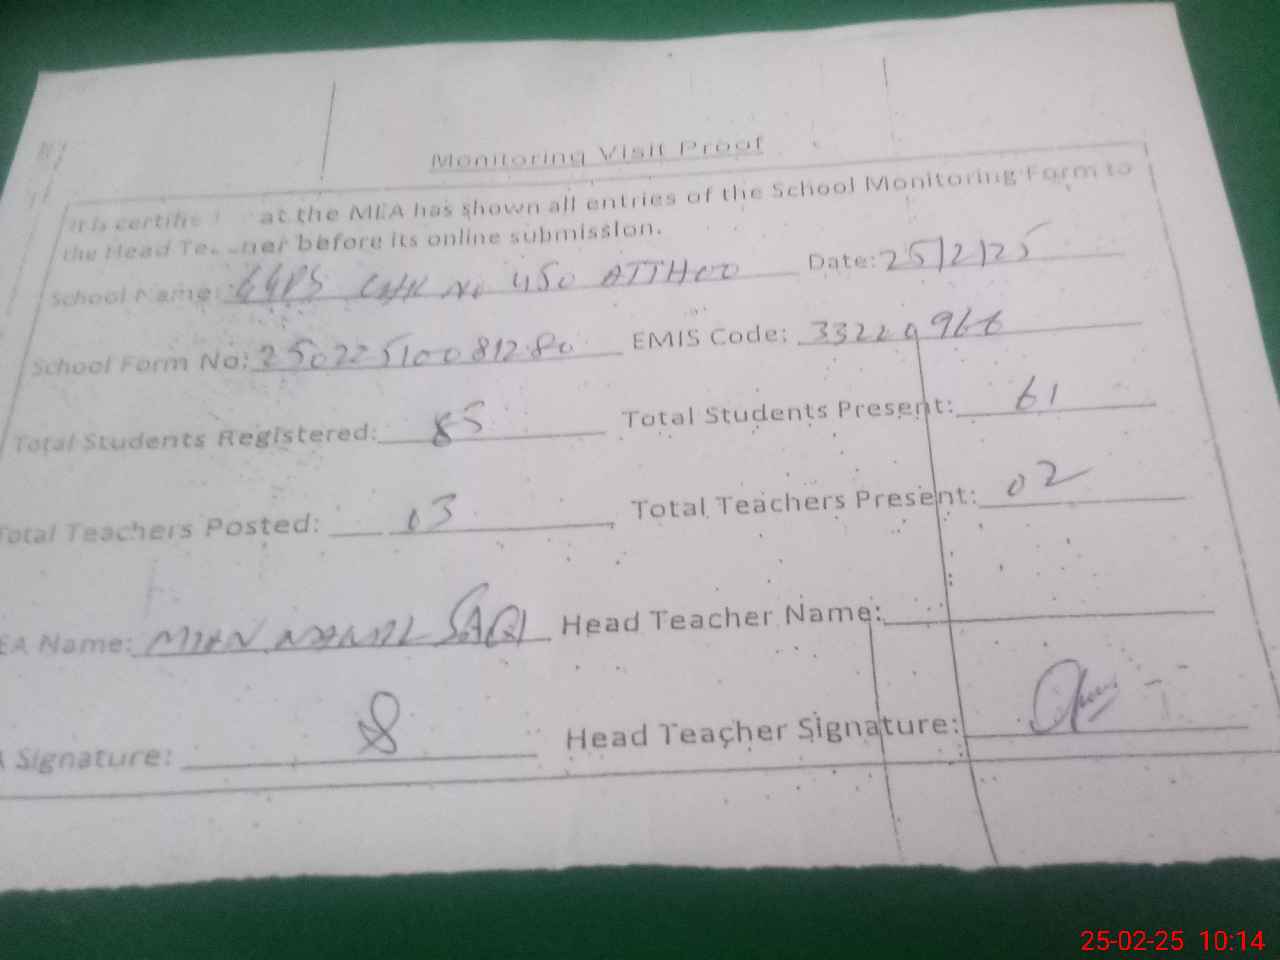 Monitoring Visit Proof
It is certifie at the MEA has shown all entries of the School Monitoring Form to
the Head Te ner before its online submission.
School Name: GGPS CHK No 450 ATTHOO Date: 25/2/25
School Form No: 25022510081280 EMIS Code: 33229966
Total Students Registered: 85 Total Students Present: 61
Total Teachers Posted: 03 Total Teachers Present: 02
EA Name: MIAN SAQI Head Teacher Name:
A Signature: Head Teacher Signature:
25-02-25 10:14